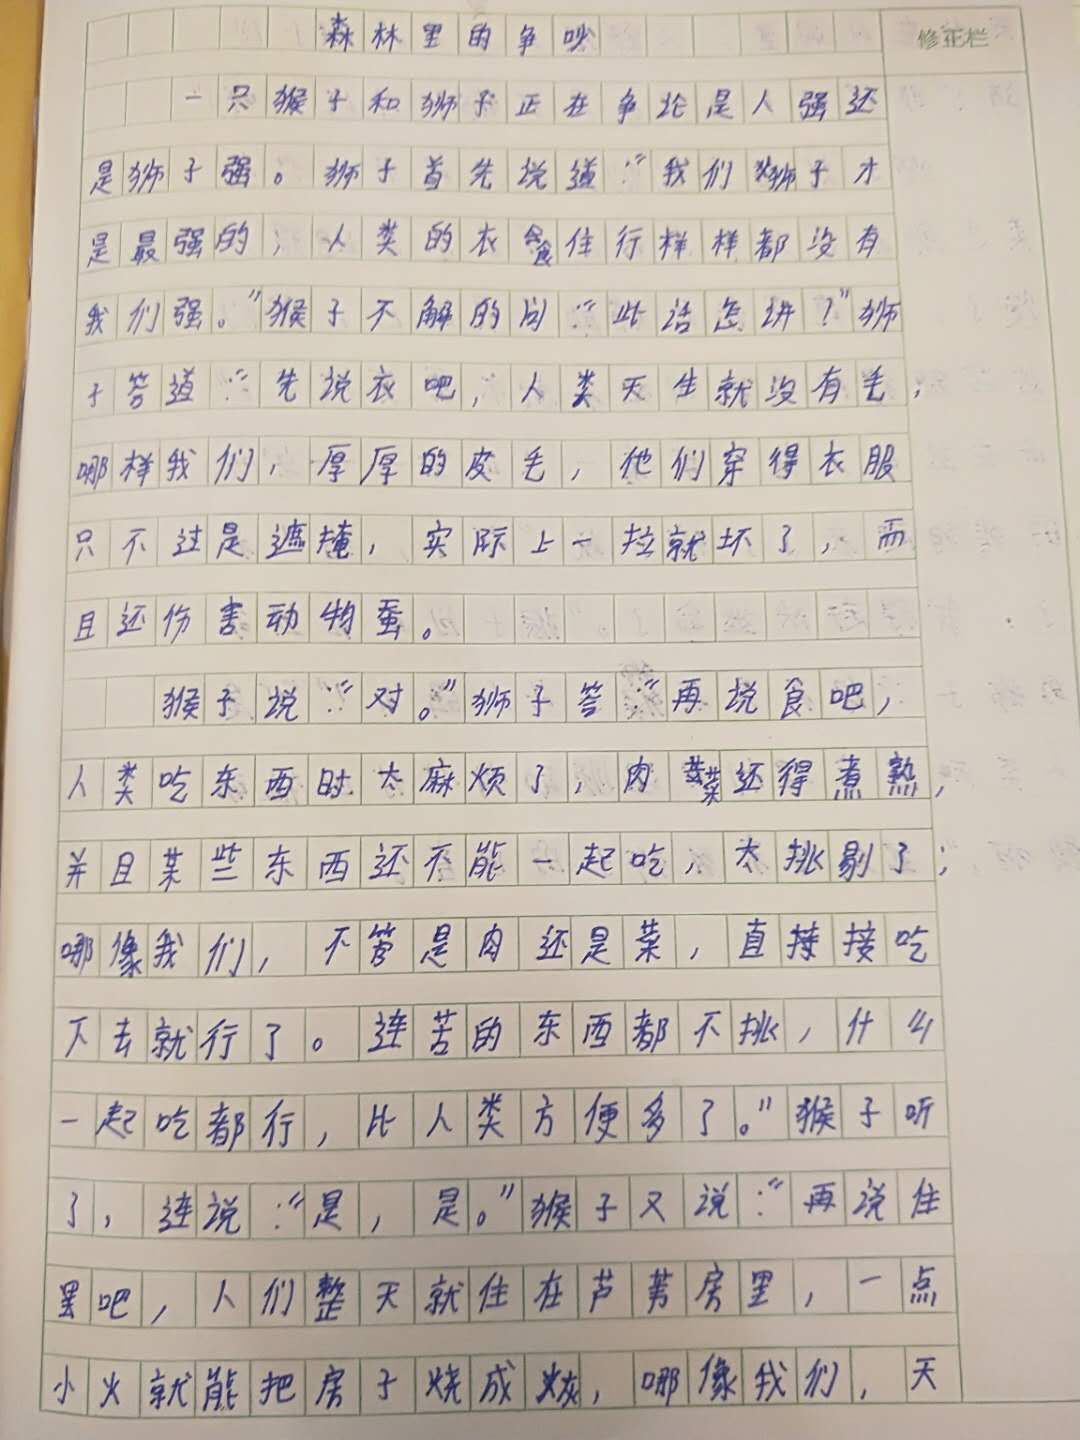 森林里的争吵
修正栏
一只猴子和狮子正在争论是人强还
是狮子强。狮子首先说道：“我们狮子才
是最强的，人类的衣食住行样样都没有
我们强。”猴子不解的问：“此话怎讲？”狮
子答道：“先说衣吧，人类天生就没有毛，
哪样我们，厚厚的皮毛，他们穿得衣服
只不过是遮掩，实际上一拉就坏了，而
且还伤害动物蚕。
猴子说：“对。”狮子答：“再说食吧，
人类吃东西时太麻烦了，肉菜还得煮熟，
并且某些东西还不能一起吃，太挑剔了；
哪像我们，不管是肉还是菜，直接接吃
下去就行了。连苦的东西都不挑，什么
一起吃都行，比人类方便多了。”猴子听
了，连说：“是，是。”猴子又说：“再说住
里吧，人们整天就住在芦苇房里，一点
小火就能把房子烧成灰，哪像我们，天